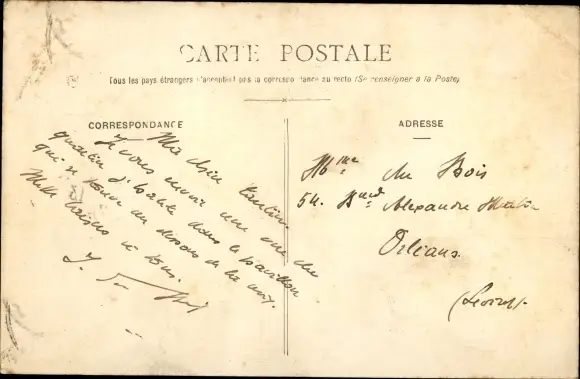 CARTE POSTALE
Tous les pays étrangers n'acceptent pas la correspondance au recto (Se renseigner à la Poste)
CORRESPONDANCE
Ma chère
Je vous envoie une vue du
quartier d' dans le pavillon
qui se trouve au dessous de la
Mille baisers à tous.
J.
ADRESSE
Mme du Bois
54. Bard Alexandre Martin
Orléans
(Loiret).